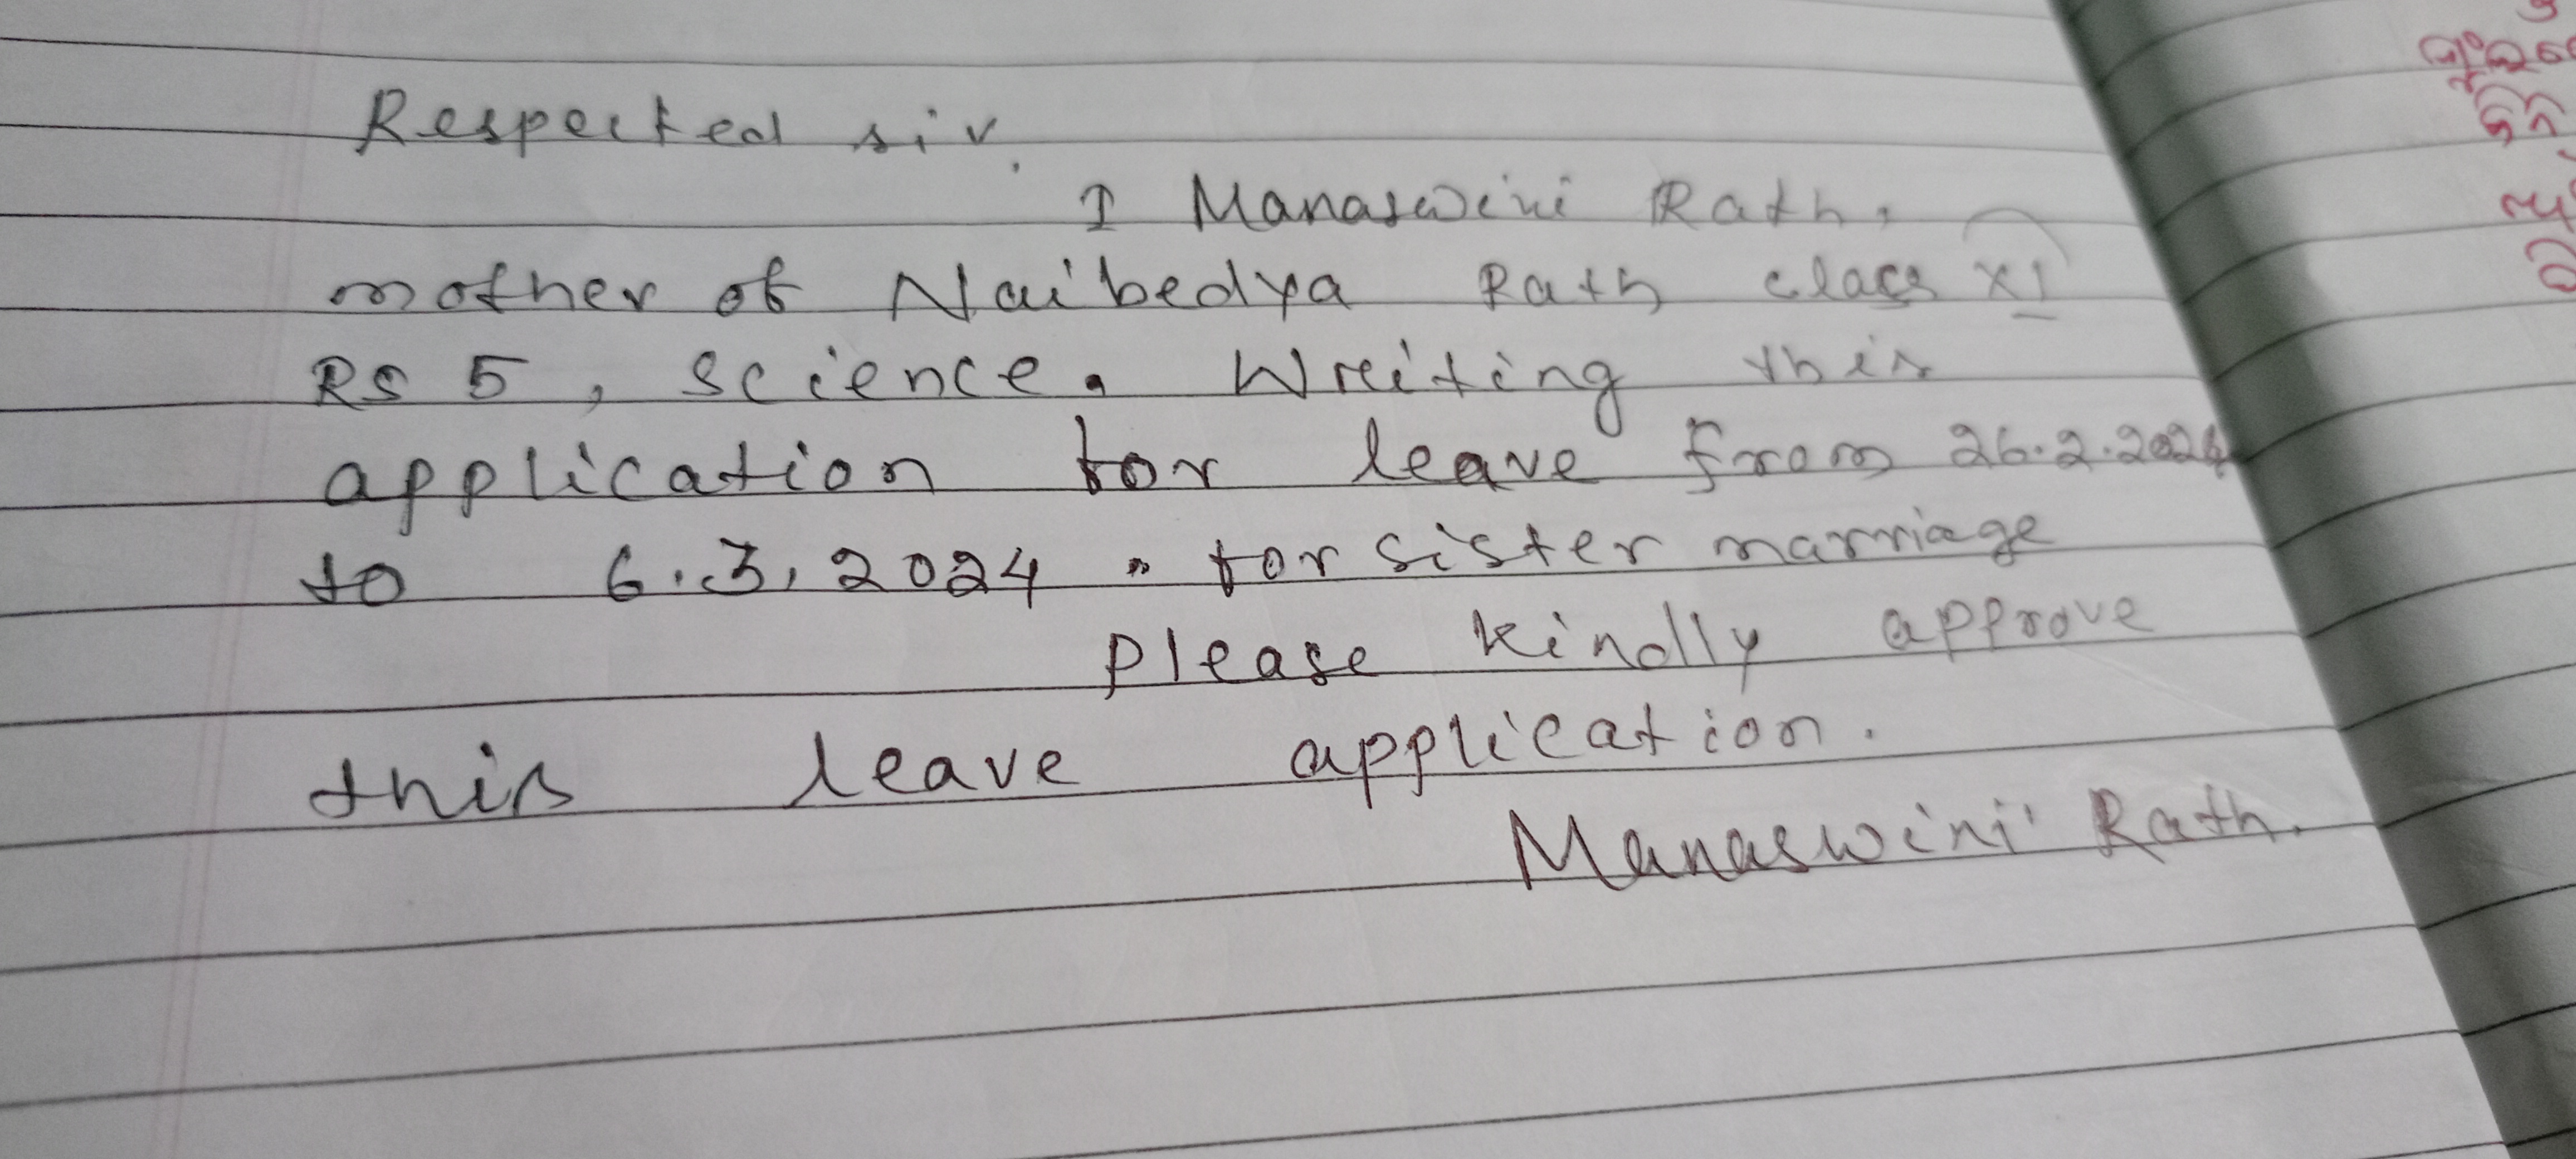 Respected sir,
I Manaswini Rath,
mother of Naibedya Rath class XI
RS 5, Science. Wreiting this
application for leave from 26.2.2024
to 6.3.2024 . for sister marriage
Please kindly approve
this leave application.
Manaswini Rath.